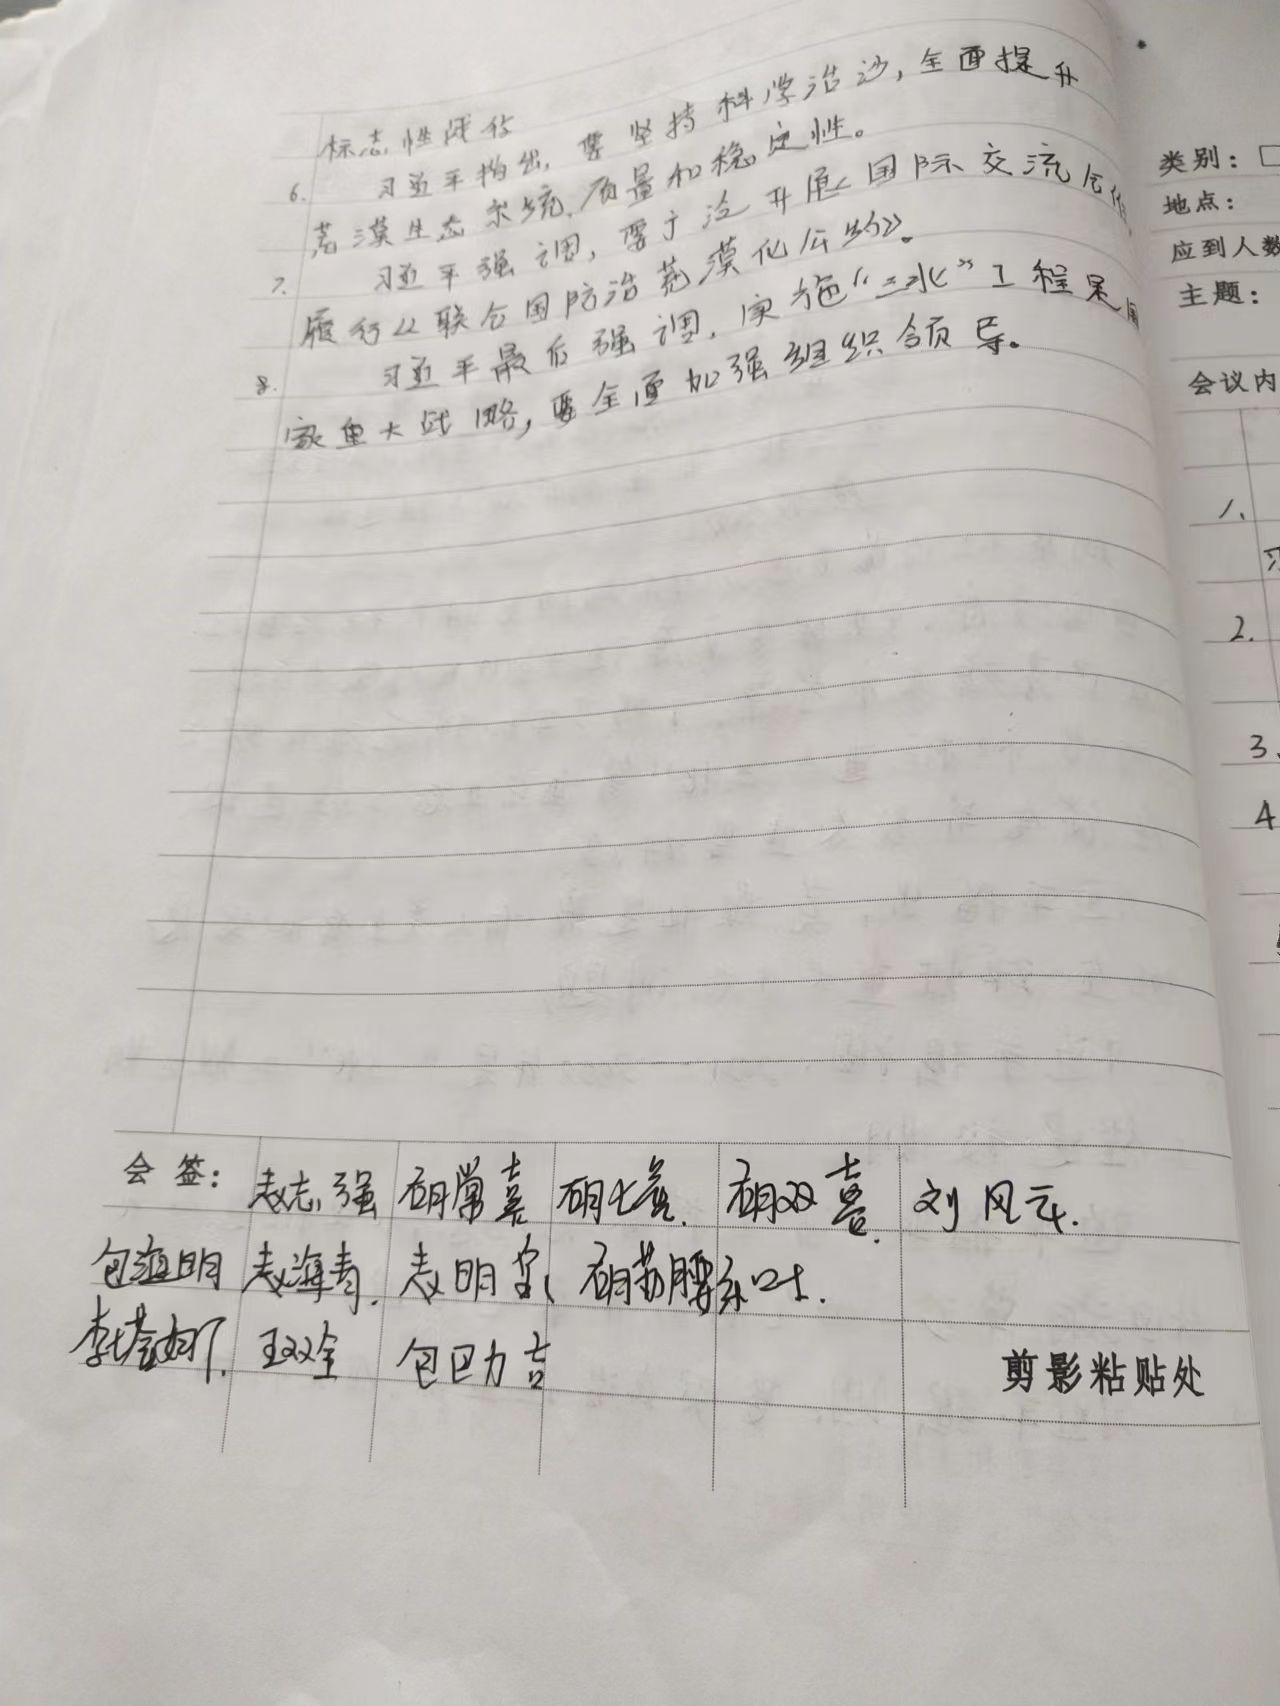 标志性战役
6. 习近平指出，要坚持科学治沙，全面提升
荒漠生态系统质量和稳定性。
7. 习近平强调，要广泛开展国际交流合作，
履行《联合国防治荒漠化公约》。
8. 习近平最后强调，实施“三北”工程是国
家重大战略，要全面加强组织领导。
会 签： 赵志强 胡常喜 胡七 胡双喜 刘凤云
包海明 赵海青 赵明 胡
李塔娜 王双全 包巴力吉
剪影粘贴处
类别：□
地点：
应到人数
主题：
会议内
1、
习
2.
3、
4